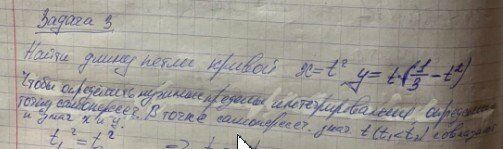 Задача 3
Найти длину петли кривой x=t², y=t·(1/3-t²)
Чтобы определить нужные пределы интегрирования, определим
точку самопересеч. В точке самопересеч. знач. t(t₁<t₂) совпадают
и знач x и y.
t₁²=t₂² =>